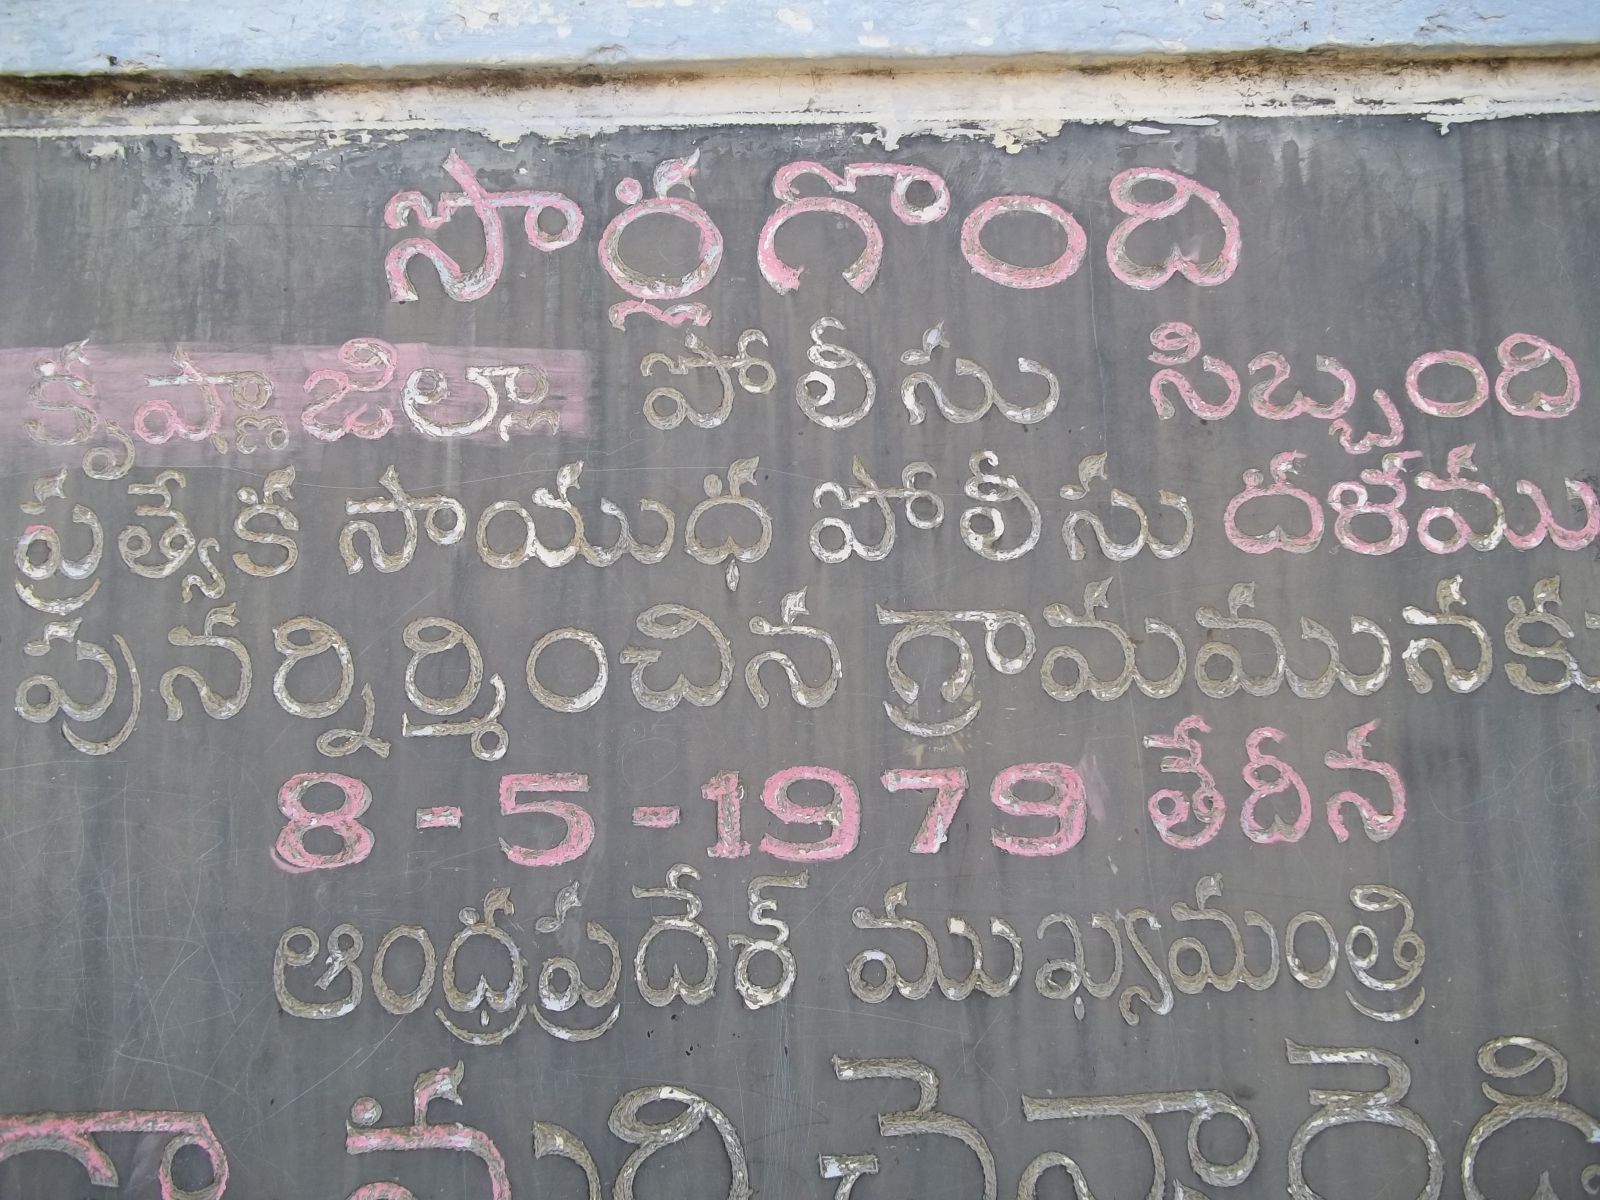 సొర్లగొంది
కృష్ణాజిల్లా పోలీసు సిబ్బంది
ప్రత్యేక సాయుధ పోలీసు దళము
పునర్నిర్మించిన గ్రామమునకు
8-5-1979 తేదీన
ఆంధ్రప్రదేశ్ ముఖ్యమంత్రి
డా మర్రి చెన్నారెడ్డి